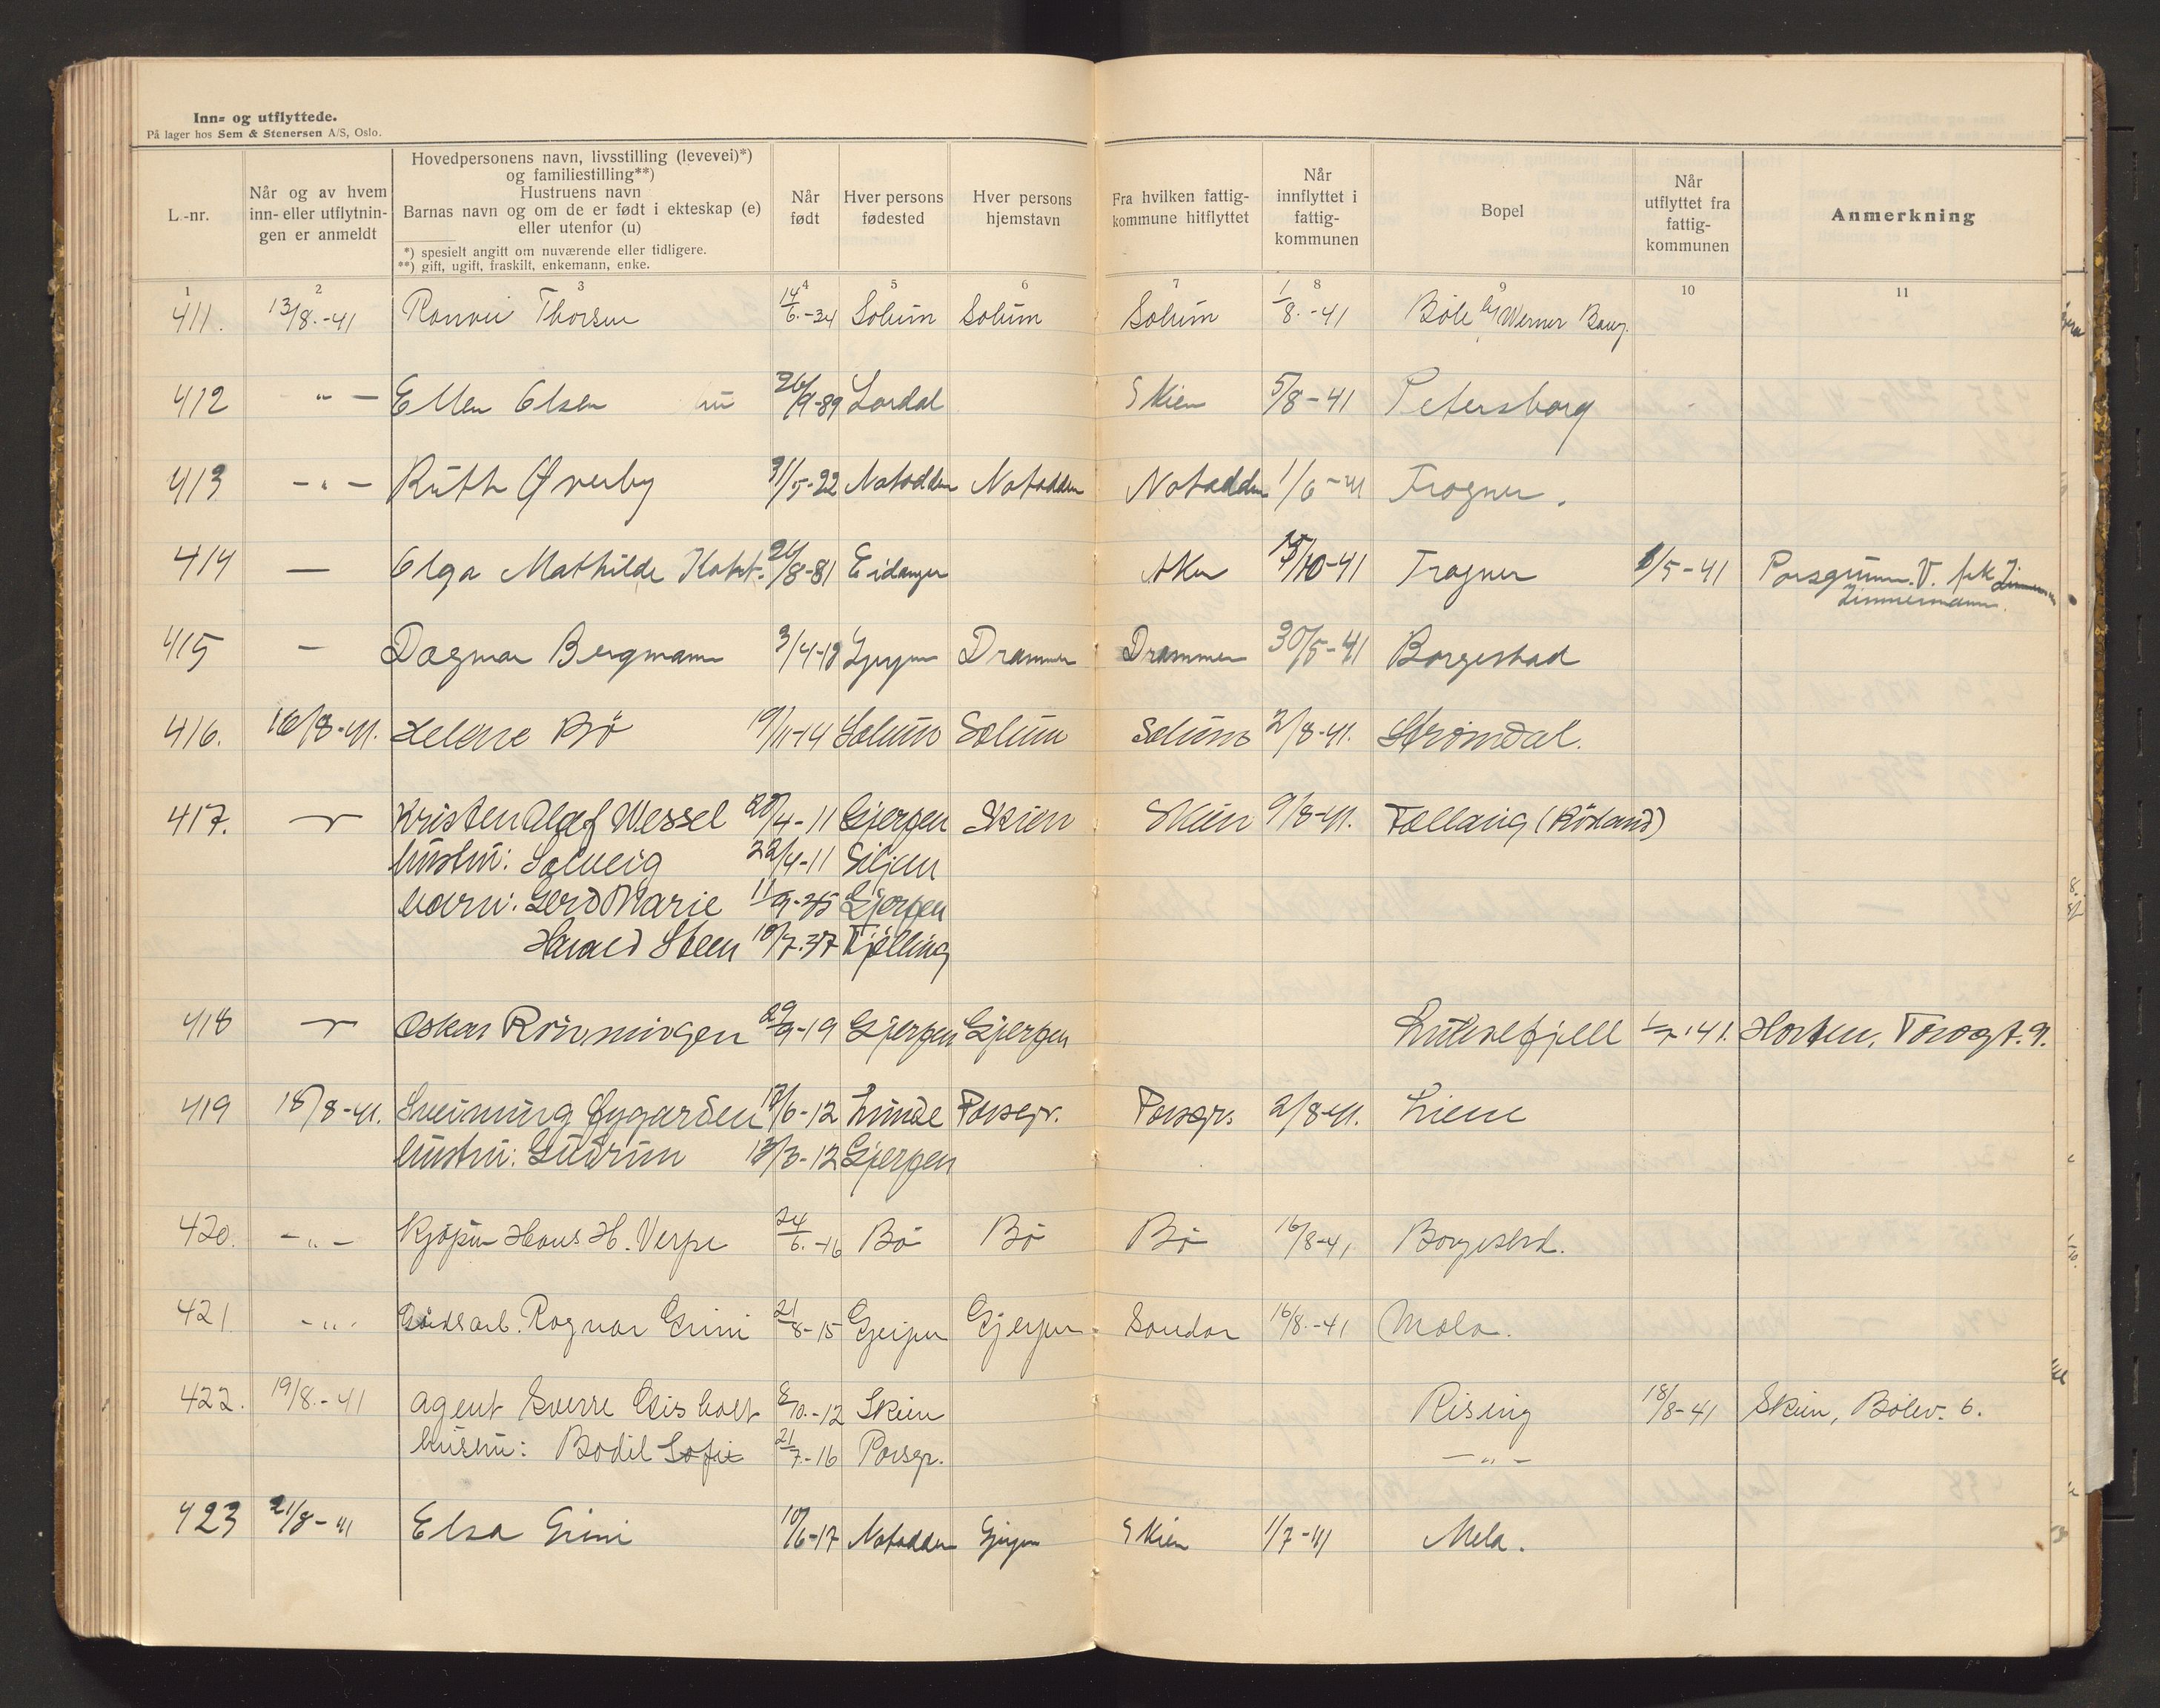 Inn- og utflyttede.
På lager hos Sem & Stenersen A/S, Oslo.
L.-nr.
Når og av hvem inn- eller utflytnin-gen er anmeldt
Hovedpersonens navn, livsstilling (levevei)*)
og familiestilling**)
Hustruens navn
Barnas navn og om de er født i ekteskap (e)
eller utenfor (u)
*) spesielt angitt om nuværende eller tidligere.
**) gift, ugift, fraskilt, enkemann, enke.
Når født
Hver persons fødested
Hver persons hjemstavn
Fra hvilken fattig-kommune hitflyttet
Når innflyttet i fattig-kommunen
Bopel
Når utflyttet fra fattig-kommunen
Anmerkning
1 2 3 4 5 6 7 8 9 10 11
411. 13/8.-41 Thorsen 14/6.-34 Solum Solum Solum 1/8.-41 Böle Werner
412 " - Ellen Olsen 26/9-89 Lardal Skien 5/8-41 Petersborg
413 - " - Ruth Øverby 31/5-22 Notodden Notodden Notodden 1/6-41 Frogner.
414 — Olga Mathilde 26/8-81 Eidanger Aker 15/10-41 Frogner 1/5-41 Porsgrunn. V. frk
Zimmermann.
415 - Dagmar Bergmann 3/4-18 Gjerpen Drammen Drammen 30/5-41 Borgestad
416. 16/8-41. Helene Bö 19/11-14 Solum Solum Solum 2/8-41. Strömdal.
417. Kristen Olaf Wessel 20/4-11 Gjerpen Skien Skien 9/8-41.
hustru: Solveig 22/4-11 Siljan
barn: Gerd Marie 11/9-35 Gjerpen
Harald Steen 10/7-37 Tjölling
418 Oskar Rönningen 29/9-19 Gjerpen Gjerpen Luksefjell 1/7-41. Horten, 9.
419 18/8-41. Sveinung Øygarden 17/6-12 Lunde Porsgr. Porsgr. 2/8-41. Liene
hustru: Gudrun 13/3-12 Gjerpen
420. - " - Hans H. Verpe 24/6.-16 Bö Bö Bö 16/8-41 Borgestad.
421 - " - Gårdsarb. Ragnar Grini 21/8-15 Gjerpen Gjerpen Sandar 16/8.-41 Mela.
422. 19/8.-41 Agent Sverre Gisholt 8/10.-12 Skien Rising 18/8-41 Skien, Bölev. 6.
hustru: Bodil Sofie 21/7.-16 Porsgr. - " -
423 21/8-41 Elsa Grini 10/6-17 Notodden Gjerpen Skien 1/7-41 Mela.